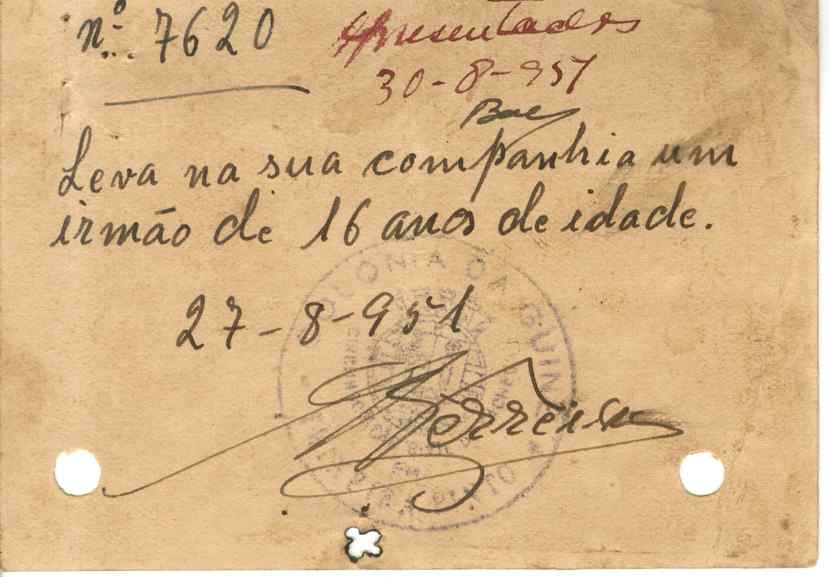 nº 7620
Apresentados
30-8-951
Leva na sua companhia um
irmão de 16 anos de idade.
27-8-951
COLONIA DA GUINÉ
Ferreira